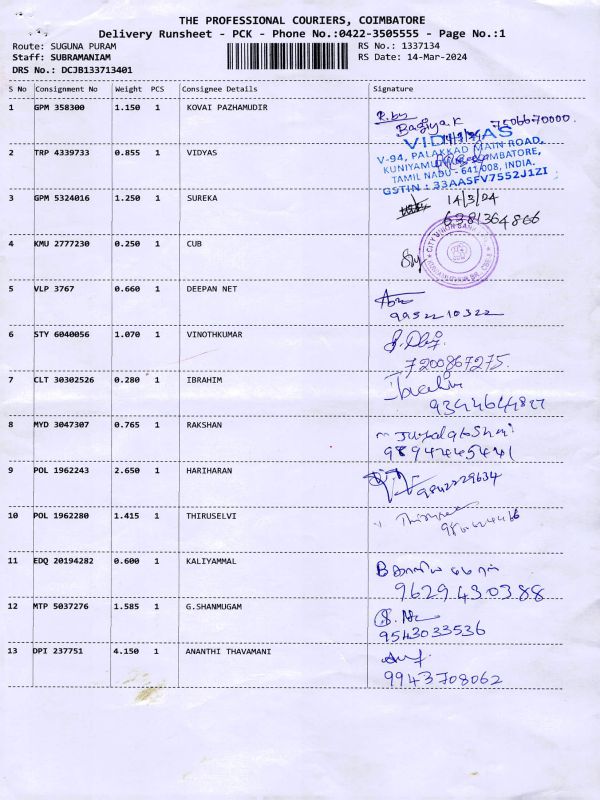 THE PROFESSIONAL COURIERS, COIMBATORE
Delivery Runsheet - PCK - Phone No.:0422-3505555 - Page No.:1
Route: SUGUNA PURAM RS No.: 1337134
Staff: SUBRAMANIAM RS Date: 14-Mar-2024
DRS No.: DCJB133713401
S No Consignment No Weight PCS Consignee Details Signature
1 GPM 358300 1.150 1 KOVAI PAZHAMUDIR R.by
Bagiya.K 7506670000.
2 TRP 4339733 0.855 1 VIDYAS VIDYAS
V-94, PALAKKAD MAIN ROAD,
KUNIYAMUTHUR, COIMBATORE,
TAMIL NADU - 641 008, INDIA.
GSTIN : 33AASFV7552J1ZI
3 GPM 5324016 1.250 1 SUREKA 14/3/24
6381364866
4 KMU 2777230 0.250 1 CUB CITY UNION BANK
5 VLP 3767 0.660 1 DEEPAN NET
9952210322
6 STY 6040056 1.070 1 VINOTHKUMAR
7200867275.
7 CLT 30302526 0.280 1 IBRAHIM Ibrahim
8 MYD 3047307 0.765 1 RAKSHAN
9 POL 1962243 2.650 1 HARIHARAN 9842229634
10 POL 1962280 1.415 1 THIRUSELVI
11 EDQ 20194282 0.600 1 KALIYAMMAL
9629430388
12 MTP 5037276 1.585 1 G.SHANMUGAM
9543033536
13 DPI 237751 4.150 1 ANANTHI THAVAMANI
9943708062